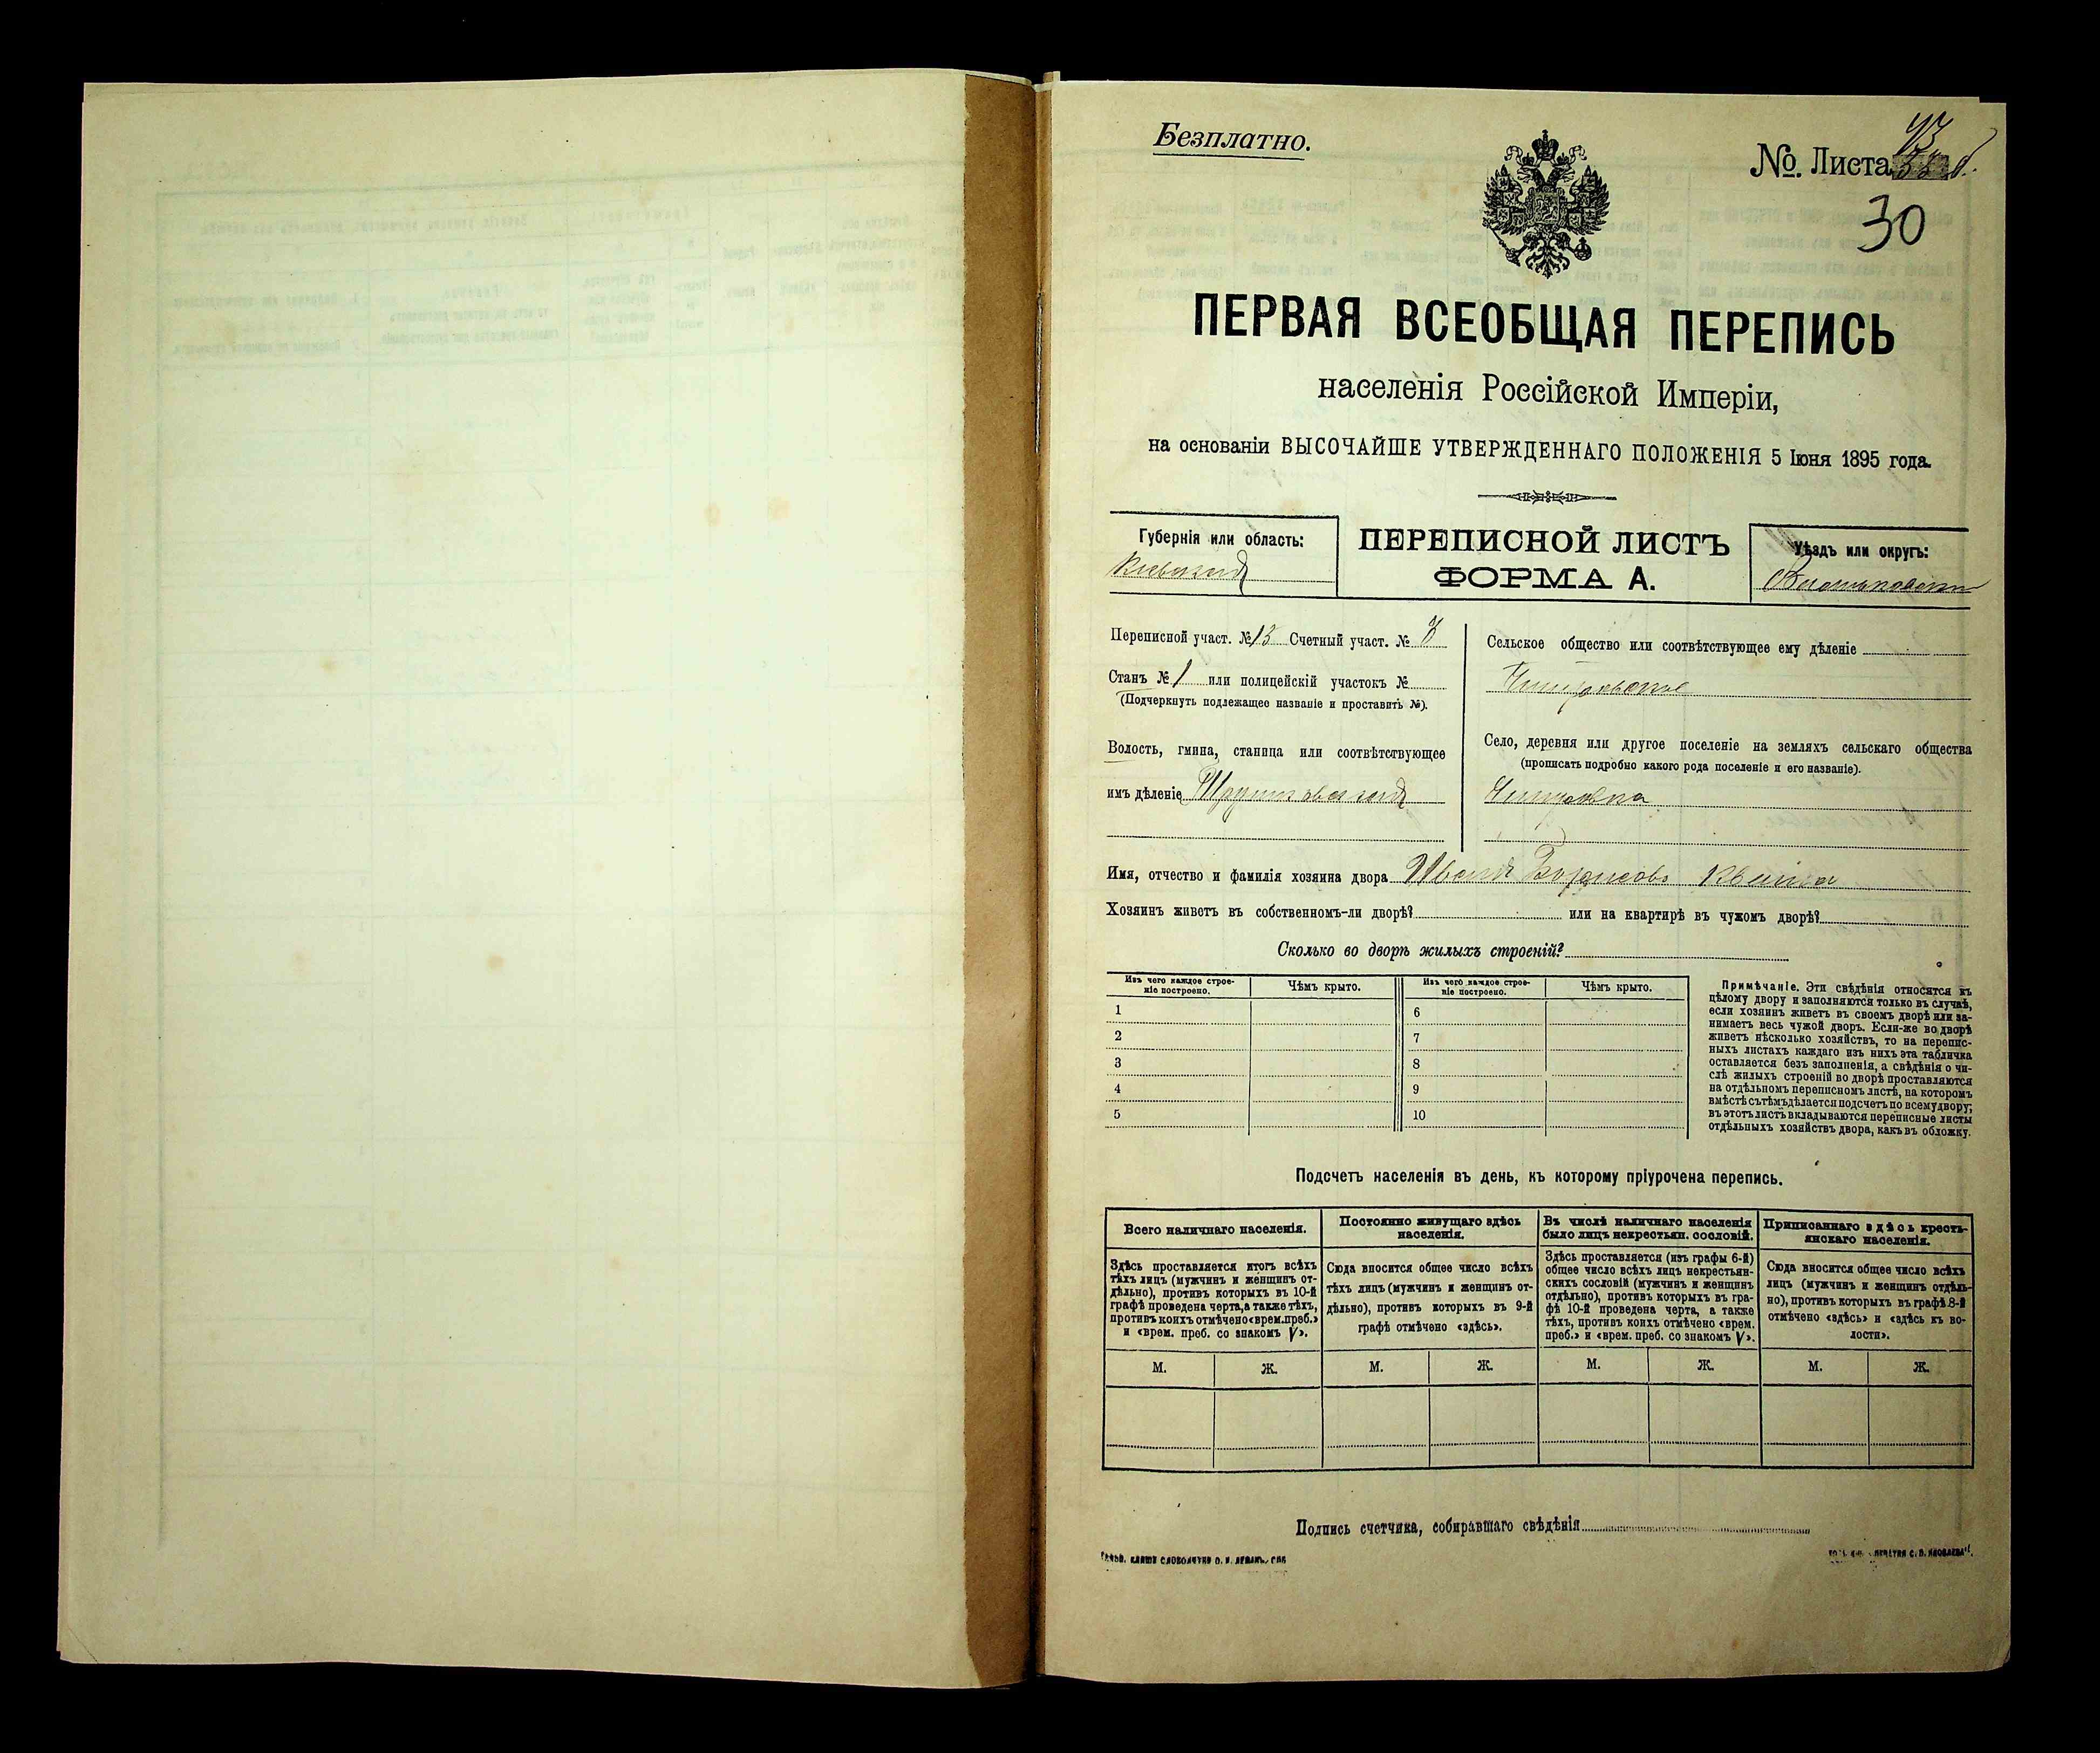 Безплатно.
№. Листа
30
ПЕРВАЯ ВСЕОБЩАЯ ПЕРЕПИСЬ
населенія Россійской Имперіи,
на основаніи ВЫСОЧАЙШЕ УТВЕРЖДЕННАГО ПОЛОЖЕНІЯ 5 Іюня 1895 года.
Губернія или область:
Кіевская
ПЕРЕПИСНОЙ ЛИСТЪ
ФОРМА А.
Уѣздъ или округъ:
Переписной участ. № 13 Счетный участ. №
Станъ № 1 или полицейскій участокъ №
(Подчеркнуть подлежащее названіе и проставить №).
Волость, гмина, станица или соотвѣтствующее
имъ дѣленіе
Сельское общество или соотвѣтствующее ему дѣленіе
Село, деревня или другое поселеніе на земляхъ сельскаго общества
(прописать подробно какого рода поселеніе и его названіе).
Имя, отчество и фамилія хозяина двора Иванъ Борисовъ
Хозяинъ живетъ въ собственномъ-ли дворѣ? или на квартирѣ въ чужомъ дворѣ?
Сколько во дворѣ жилыхъ строеній?
Изъ чего каждое строе-
ніе построено.
Чѣмъ крыто.
Изъ чего каждое строе-
ніе построено.
Чѣмъ крыто.
1 6
2 7
3 8
4 9
5 10
Примѣчаніе. Эти свѣдѣнія относятся къ
цѣлому двору и заполняются только въ случаѣ,
если хозяинъ живетъ въ своемъ дворѣ или за-
нимаетъ весь чужой дворъ. Если-же во дворѣ
живетъ нѣсколько хозяйствъ, то на перепис-
ныхъ листахъ каждаго изъ нихъ эта табличка
оставляется безъ заполненія, а свѣдѣнія о чи-
слѣ жилыхъ строеній во дворѣ проставляются
на отдѣльномъ переписномъ листѣ, на которомъ
вмѣстѣ съ тѣмъ дѣлается подсчетъ по всему двору;
въ этотъ листъ вкладываются переписные листы
отдѣльныхъ хозяйствъ двора, какъ въ обложку.
Подсчетъ населенія въ день, къ которому пріурочена перепись.
Всего наличнаго населенія.
Здѣсь проставляется итогъ всѣхъ
тѣхъ лицъ (мужчинъ и женщинъ от-
дѣльно), противъ которыхъ въ 10-й
графѣ проведена черта, а также тѣхъ,
противъ коихъ отмѣчено «врем. преб.»
и «врем. преб. со знакомъ V».
Постоянно живущаго здѣсь
населенія.
Сюда вносится общее число всѣхъ
тѣхъ лицъ (мужчинъ и женщинъ от-
дѣльно), противъ которыхъ въ 9-й
графѣ отмѣчено «здѣсь».
Въ числѣ наличнаго населенія
было лицъ некрестьян. сословій.
Здѣсь проставляется (изъ графы 6-й)
общее число всѣхъ лицъ некрестьян-
скихъ сословій (мужчинъ и женщинъ
отдѣльно), противъ которыхъ въ гра-
фѣ 10-й проведена черта, а также
тѣхъ, противъ коихъ отмѣчено «врем.
преб.» и «врем. преб. со знакомъ V».
Приписаннаго здѣсь кресть-
янскаго населенія.
Сюда вносится общее число всѣхъ
лицъ (мужчинъ и женщинъ отдѣль-
но), противъ которыхъ въ графѣ 8-й
отмѣчено «здѣсь» и «здѣсь къ во-
лости».
М. Ж. М. Ж. М. Ж. М. Ж.
Подпись счетчика, собиравшаго свѣдѣнія